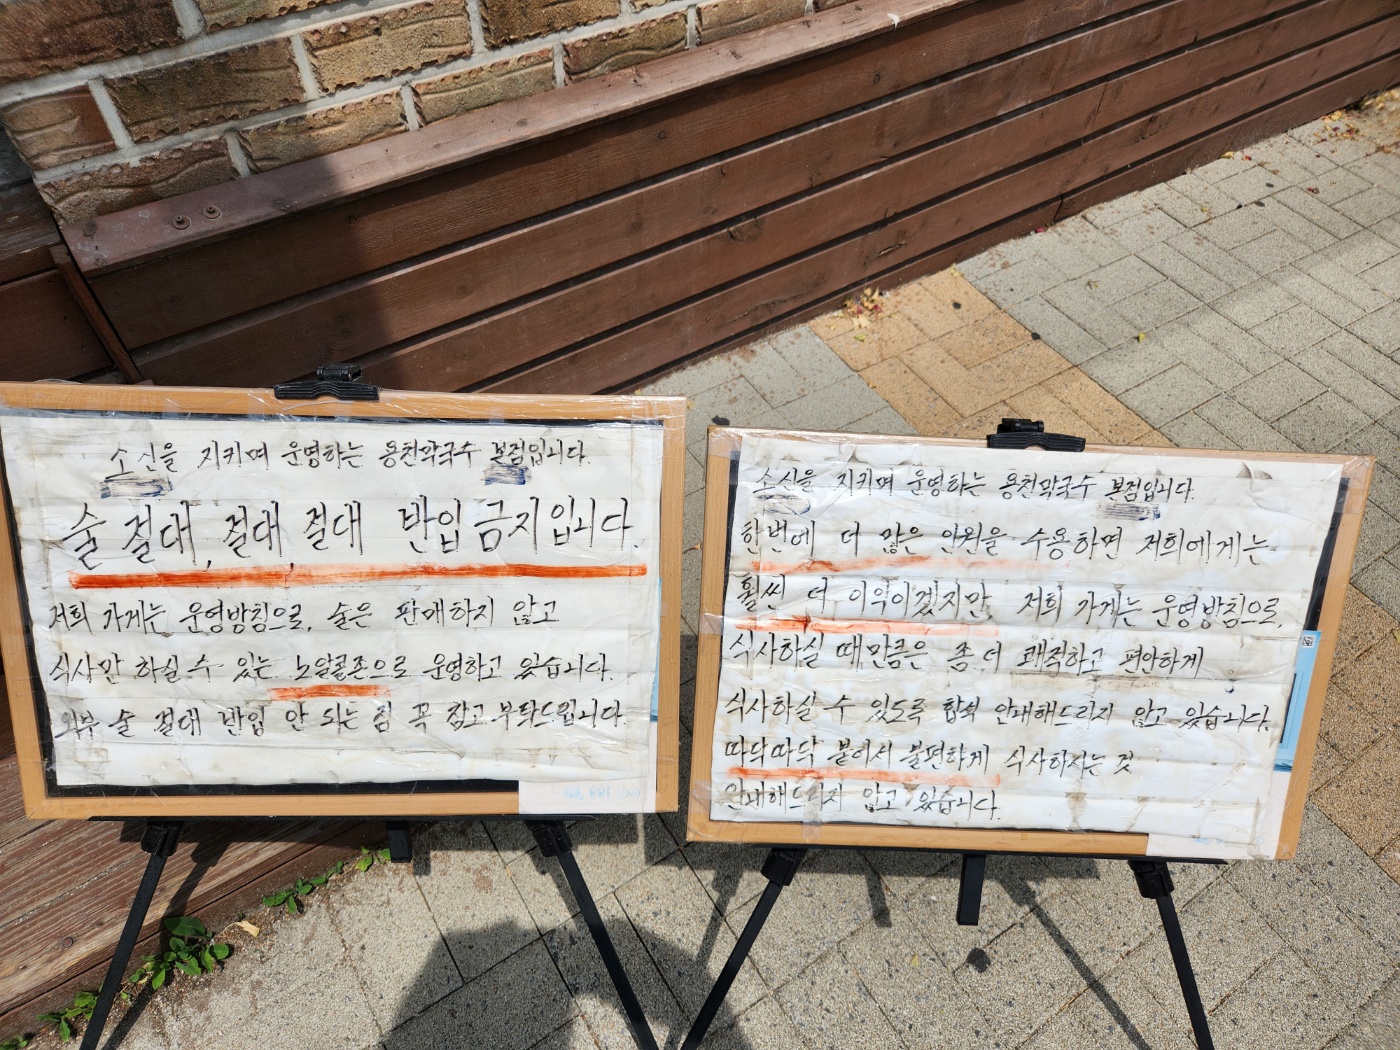 소신을 지키며 운영하는 용천막국수 본점입니다.
술 절대, 절대, 절대 반입 금지입니다.
저희 가게는 운영방침으로, 술은 판매하지 않고
식사만 하실 수 있는 노알콜존으로 운영하고 있습니다.
외부 술 절대 반입 안 되는 점 꼭 참고 부탁드립니다.
소신을 지키며 운영하는 용천막국수 본점입니다.
한번에 더 많은 인원을 수용하면 저희에게는
훨씬 더 이익이겠지만, 저희 가게는 운영방침으로,
식사하실 때만큼은 좀 더 쾌적하고 편안하게
식사하실 수 있도록 합석 안내해드리지 않고 있습니다.
따닥따닥 붙어서 불편하게 식사하시는 것
안내해드리지 않고 있습니다.